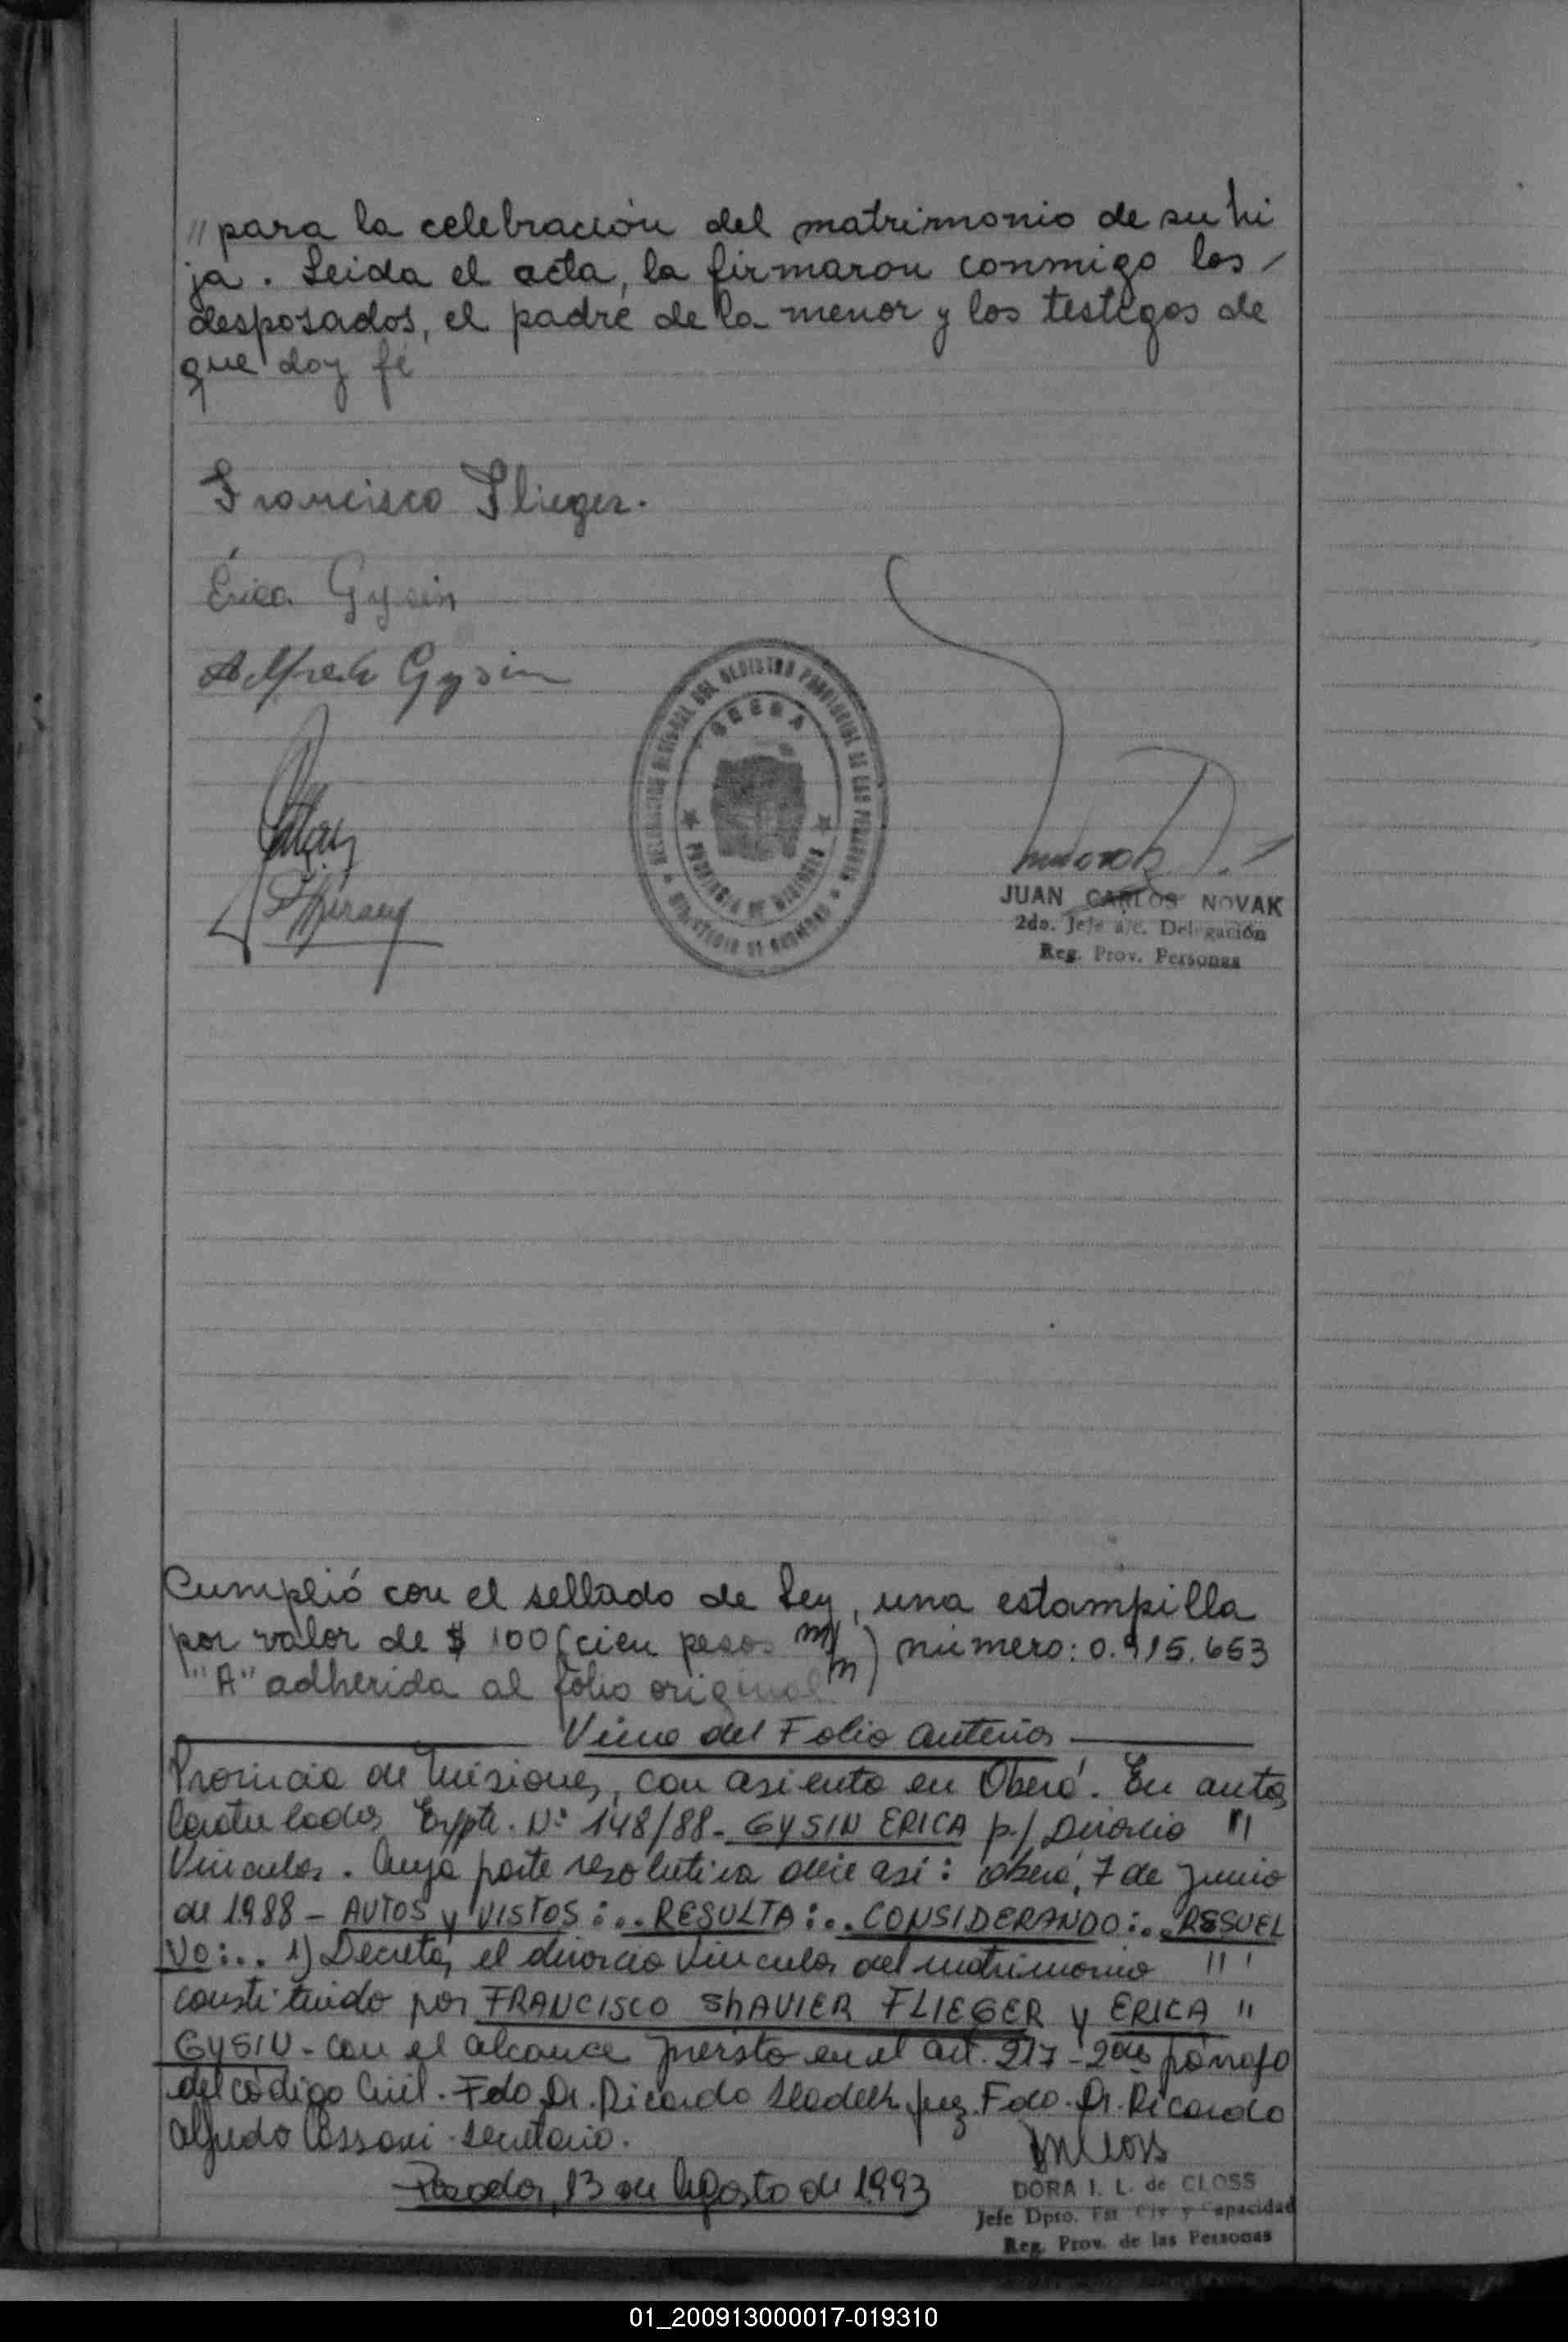 // para la celebración del matrimonio de su hi
ja. Leida el acta, la firmaron conmigo los /
desposados, el padre de la menor y los testigos de
que doy fé
Francisco Flieger.
Érica Gysin
Alfredo Gysin
DELEGACION REGIONAL DEL REGISTRO PROVINCIAL DE LAS PERSONAS
MINISTERIO DE GOBIERNO
OBERA
PROVINCIA DE MISIONES
JUAN CARLOS NOVAK
2do. Jefe a/c. Delegación
Reg. Prov. Personas
Cumplió con el sellado de Ley, una estampilla
por valor de $ 100 (cien pesos m/n) número: 0.915.653
"A" adherida al folio original
Viene del Folio anterior
Provincia de Misiones, con asiento en Oberá. En autos
Caratulados Expte. Nº 148/88- GYSIN ERICA p./ Divorcio "/
Vincular. Cuya parte resolutiva dice así: Oberá, 7 de Junio
de 1988 - AUTOS y VISTOS:.. RESULTA:.. CONSIDERANDO:.. RESUEL
VO:.. 1) Decretar el divorcio vincular del matrimonio "'
constituido por FRANCISCO ShAVIER FLIEGER y ERICA "
GYSIN - con el alcance previsto en el art. 217 - 2do párrafo
del código Civil. Fdo. Dr. Ricardo Juez. Fdo. Dr. Ricardo
Alfredo Cassoni - Secretario.
Posadas, 13 de Agosto de 1993
DORA I. L. de CLOSS
Jefe Dpto. Est. Civ y Capacidad
Reg. Prov. de las Personas
01_200913000017-019310